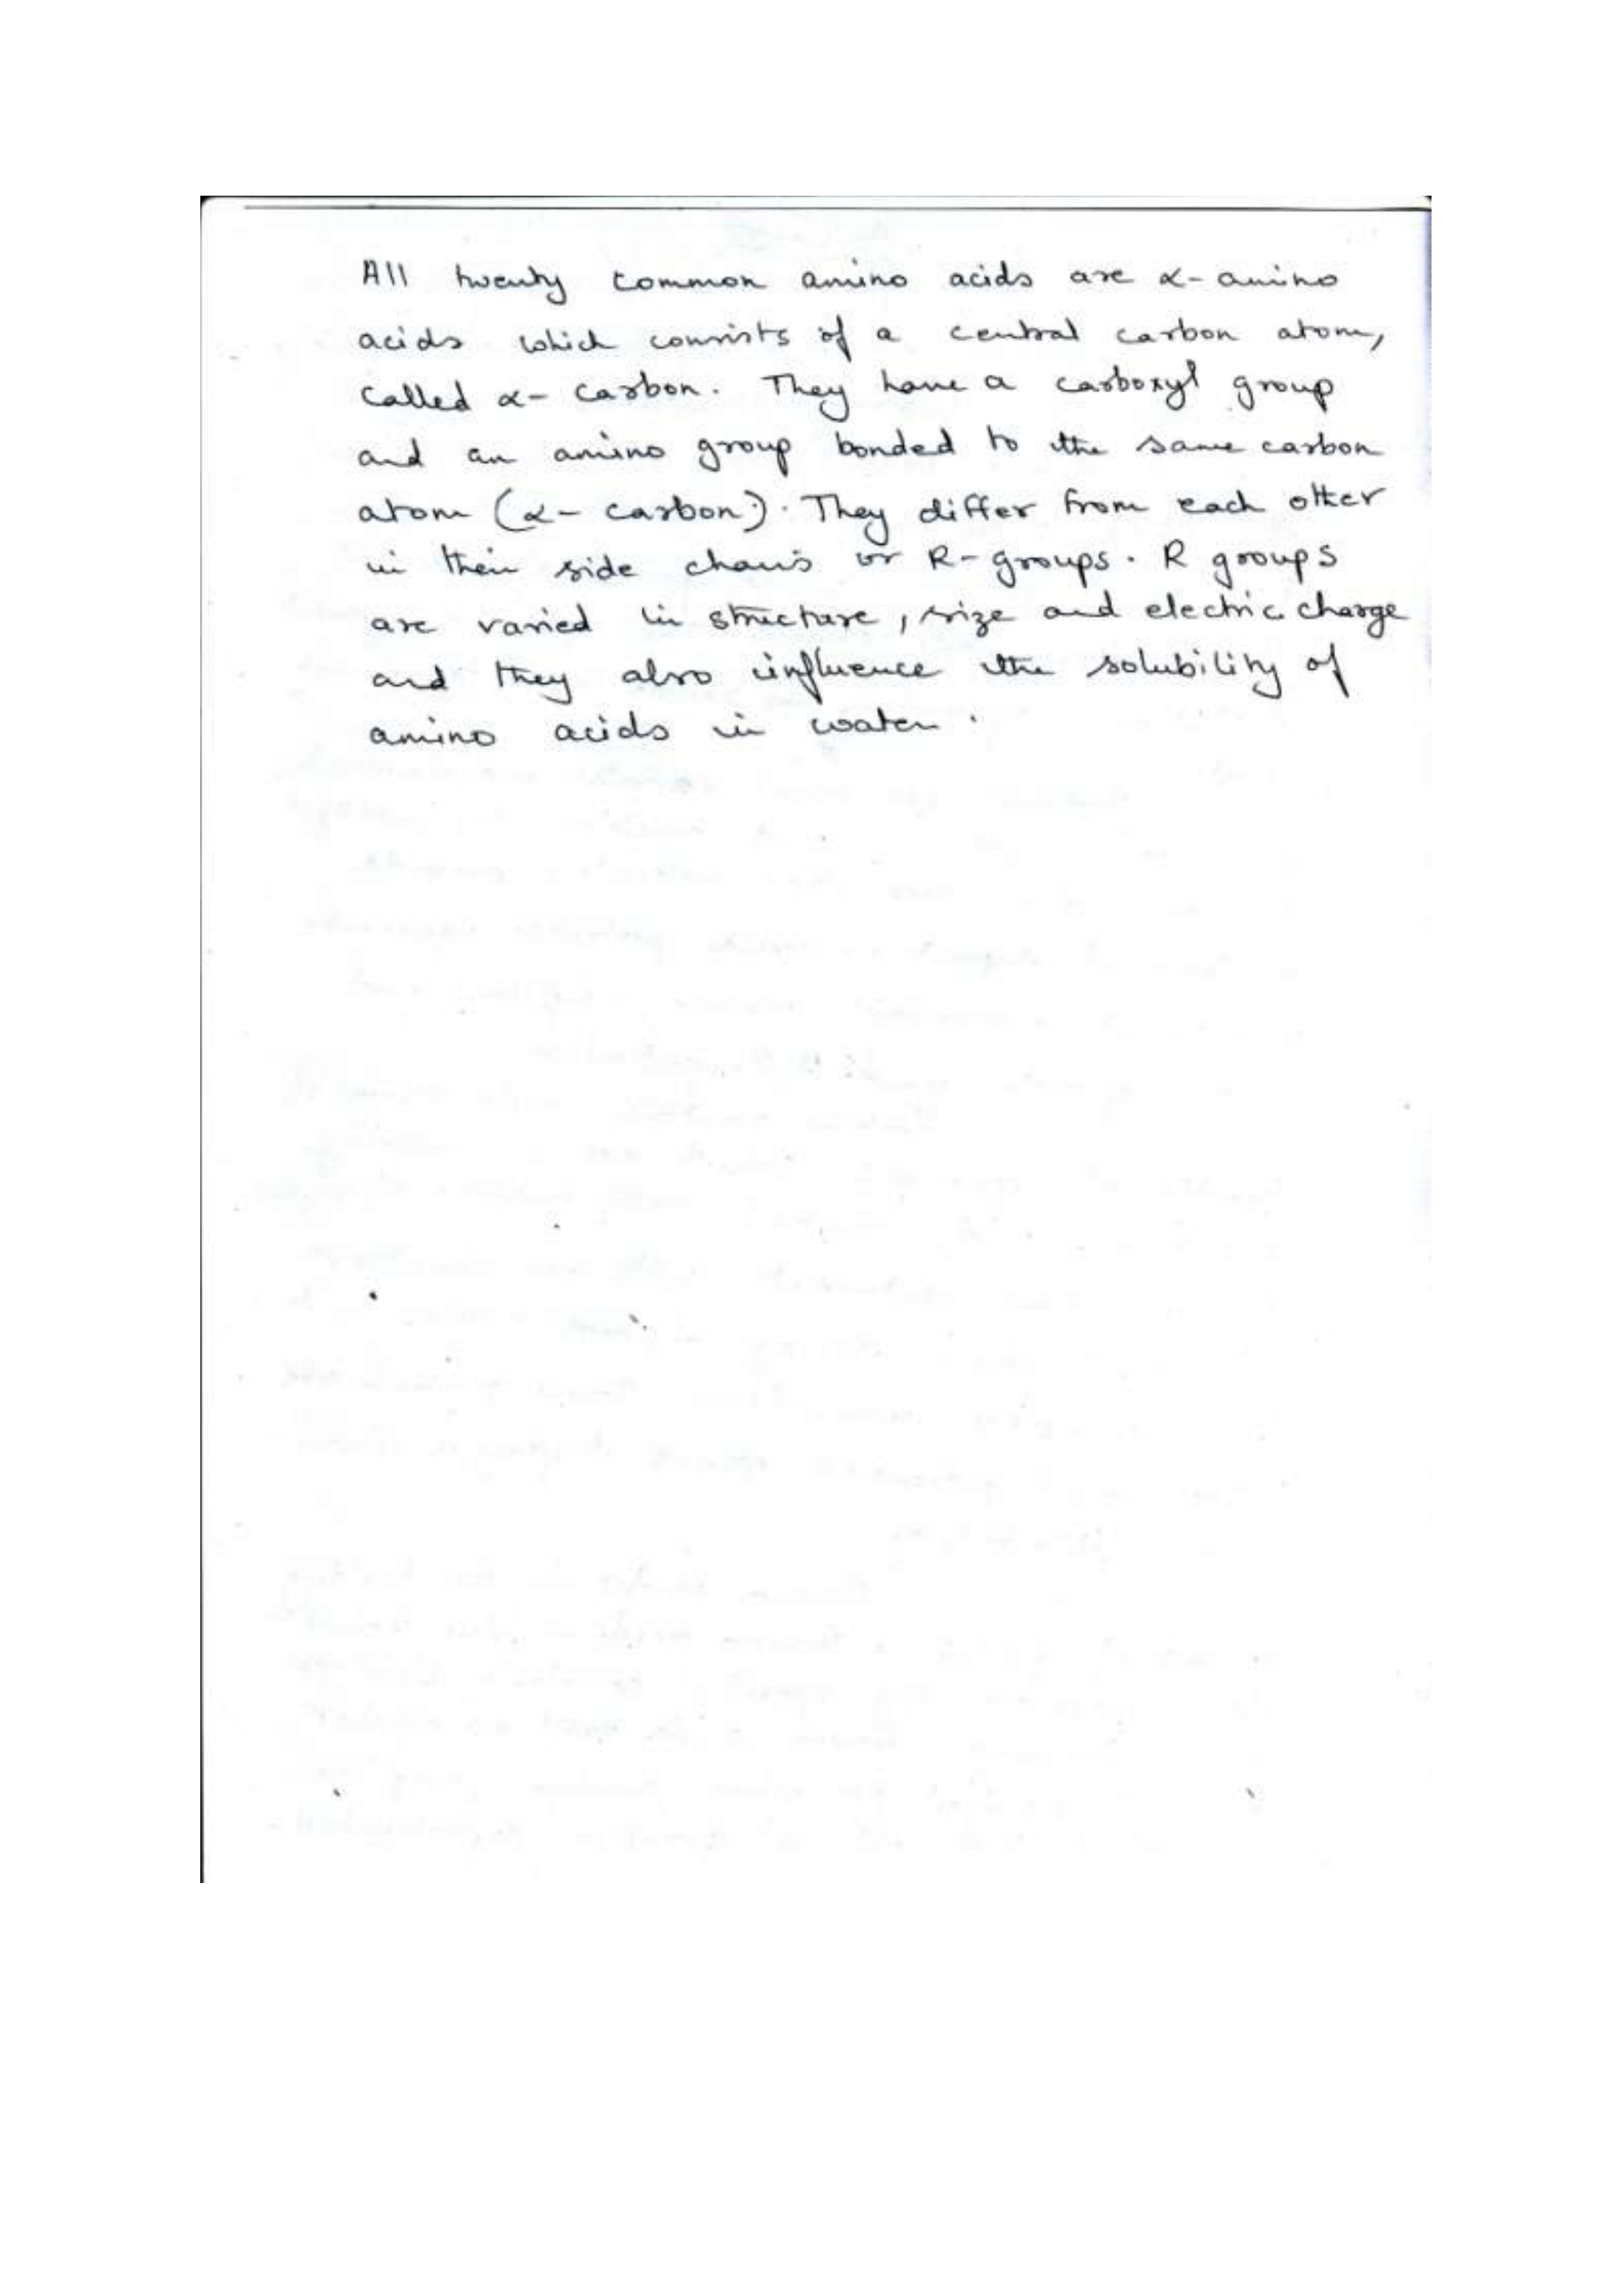 All twenty common amino acids are α-amino
acids which consists of a central carbon atom,
called α- carbon. They have a carboxyl group
and an amino group bonded to the same carbon
atom (α- carbon). They differ from each other
in their side chains or R-groups. R groups
are varied in structure, size and electric charge
and they also influence the solubility of
amino acids in water.